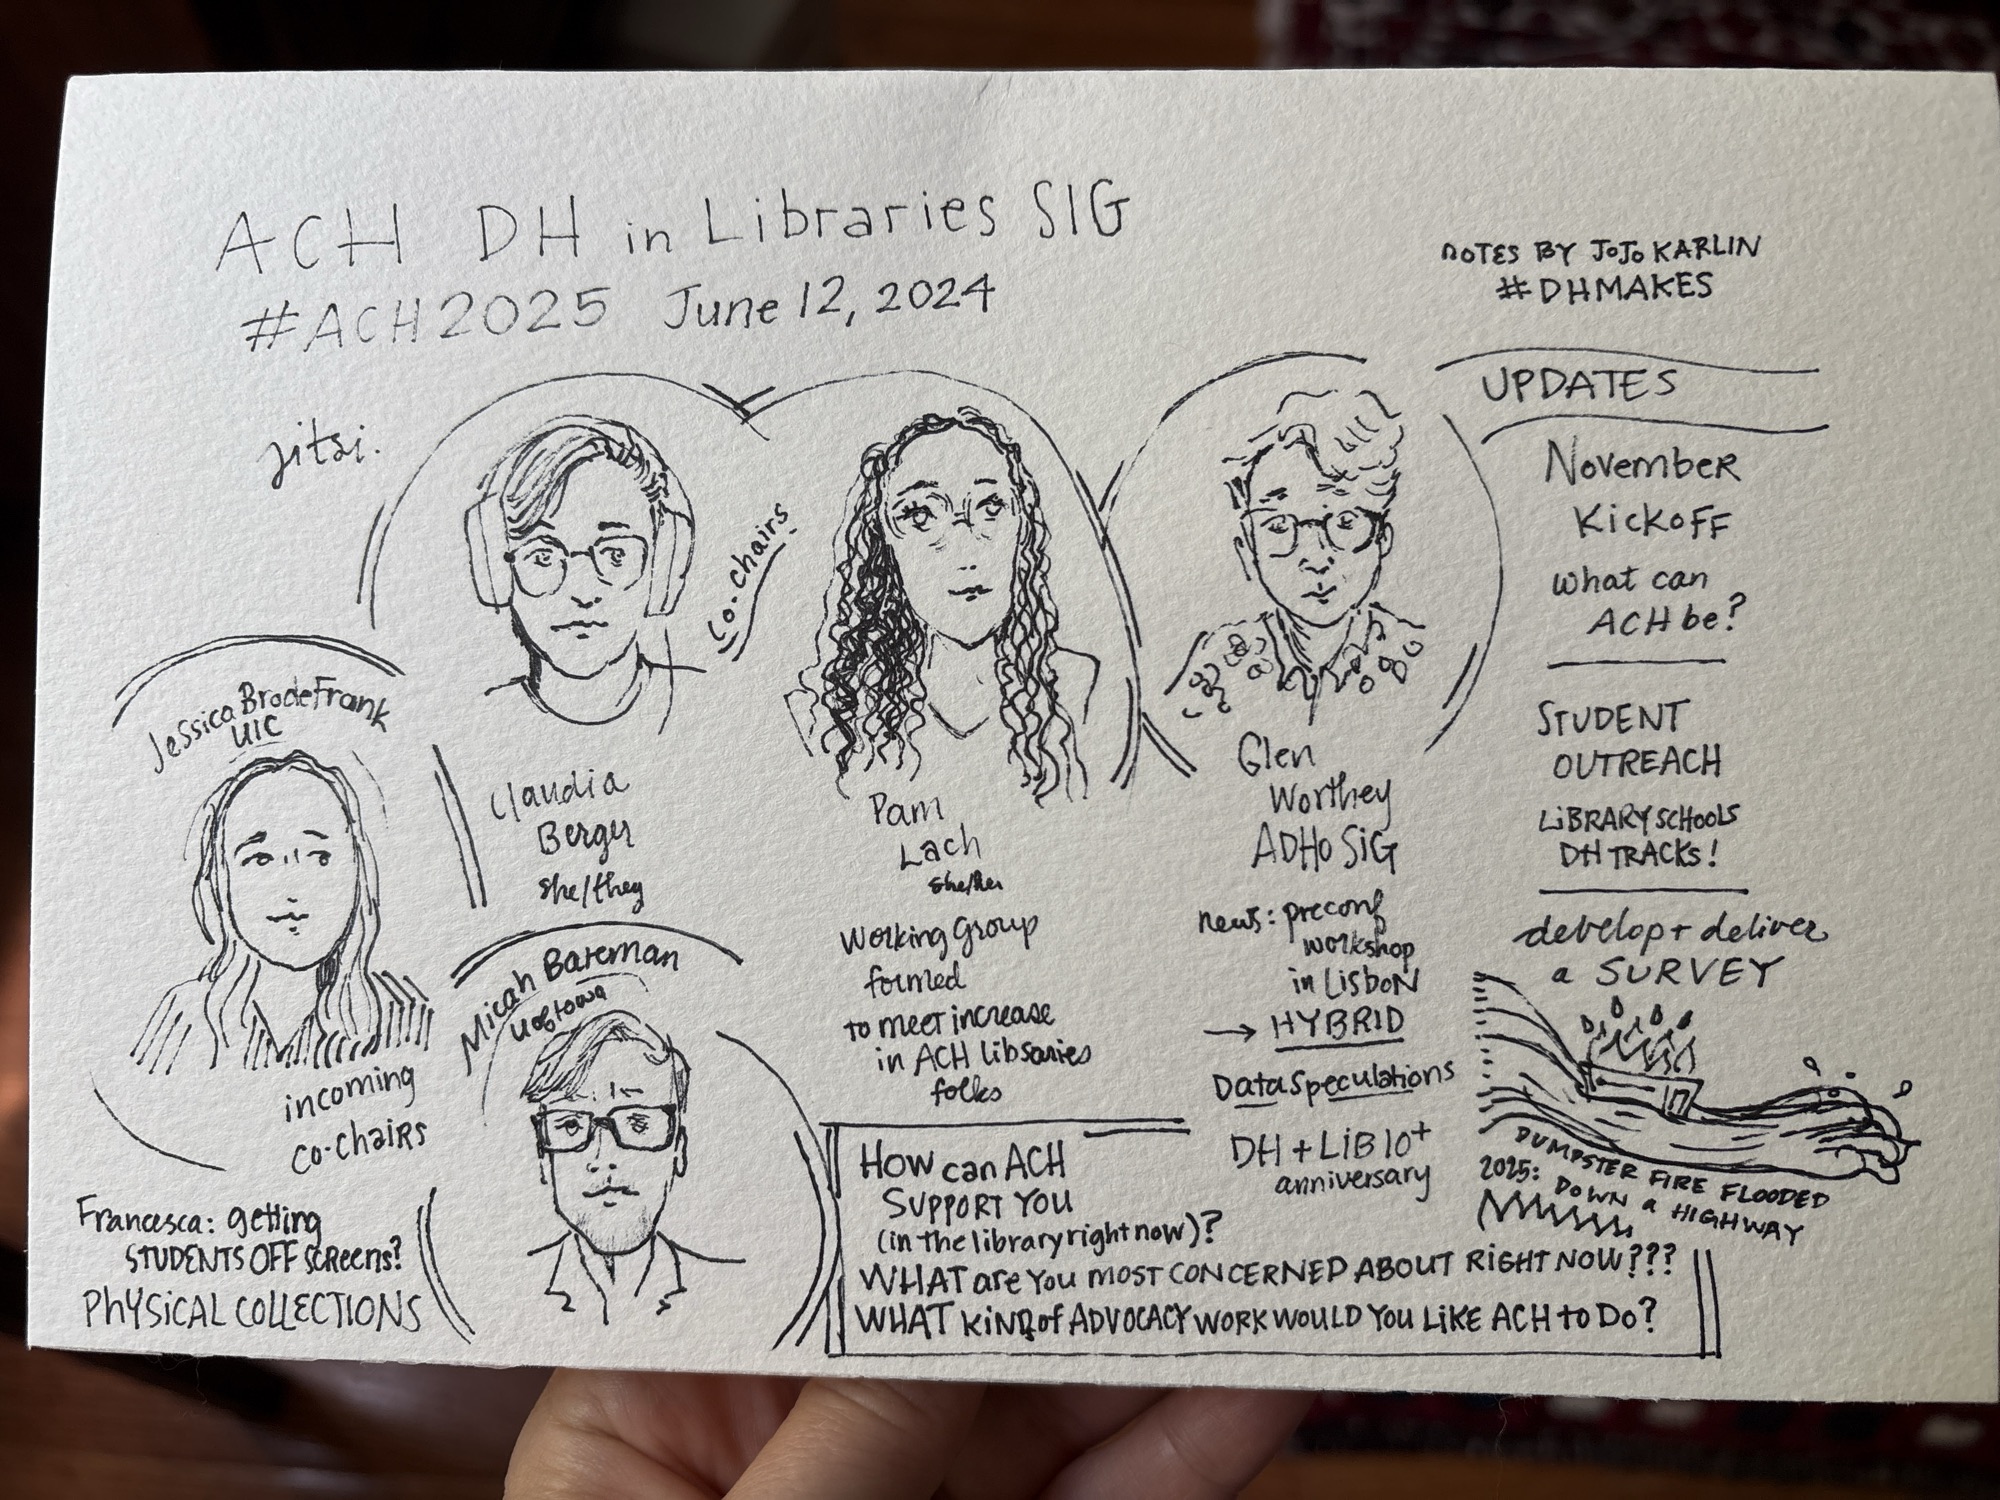 ACH DH in Libraries SIG
#ACH2025 June 12, 2024
NOTES BY JOJO KARLIN
#DHMAKES
jitsi.
Co-chairs
Jessica BrodeFrank
UIC
incoming
co-chairs
Claudia
Berger
she/they
Micah Bateman
U of Iowa
Francesca: getting
STUDENTS OFF SCREENS?
PHYSICAL COLLECTIONS
Pam
Lach
she/her
Working Group
formed
to meet increase
in ACH libraries
folks
Glen
Worthey
ADHO SIG
news: preconf
workshop
in LISBON
→ HYBRID
Data Speculations
DH + LIB 10+
anniversary
UPDATES
November
Kickoff
what can
ACH be?
STUDENT
OUTREACH
LIBRARY SCHOOLS
DH TRACKS!
develop + deliver
a SURVEY
DUMPSTER FIRE FLOODED
2025: DOWN a HIGHWAY
How can ACH
SUPPORT YOU
(in the library right now)?
WHAT are YOU MOST CONCERNED ABOUT RIGHT NOW???
WHAT KIND of ADVOCACY WORK WOULD YOU LIKE ACH to Do?